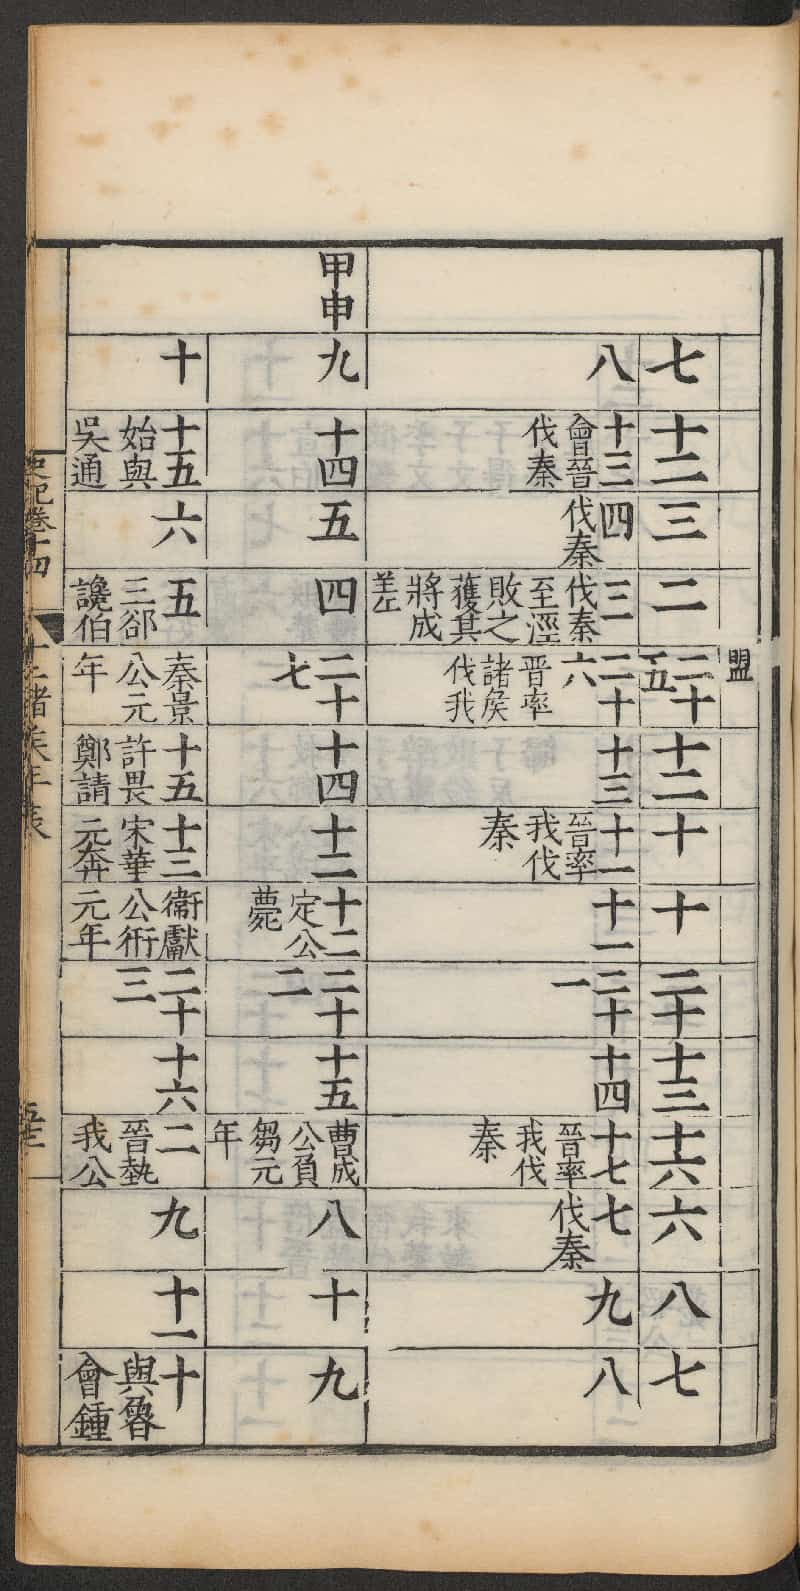 盟
七
十二
三
二
二十
五
十二
十
十
二十
十三
十六
六
八
七
八
十三
會晉
伐秦
四
伐秦
三
伐秦
至涇
敗之
獲其
將成
差
二十
六
晉率
諸侯
伐我
十三
十一
晉率
我伐
秦
十一
二十
一
十四
十七
晉率
我伐
秦
七
伐秦
九
八
甲申
九
十四
五
四
二十
七
十四
十二
十二
定公
薨
二十
二
十五
曹成
公負
芻元
年
八
十
九
十
十五
始與
吳通
六
五
三郤
讒伯
秦景
公元
年
十五
許畏
鄭請
十三
宋華
元奔
衞獻
公衎
元年
二十
三
十六
二
晉執
我公
九
十一
十
與魯
會鍾
史記卷十四
十二諸侯年表